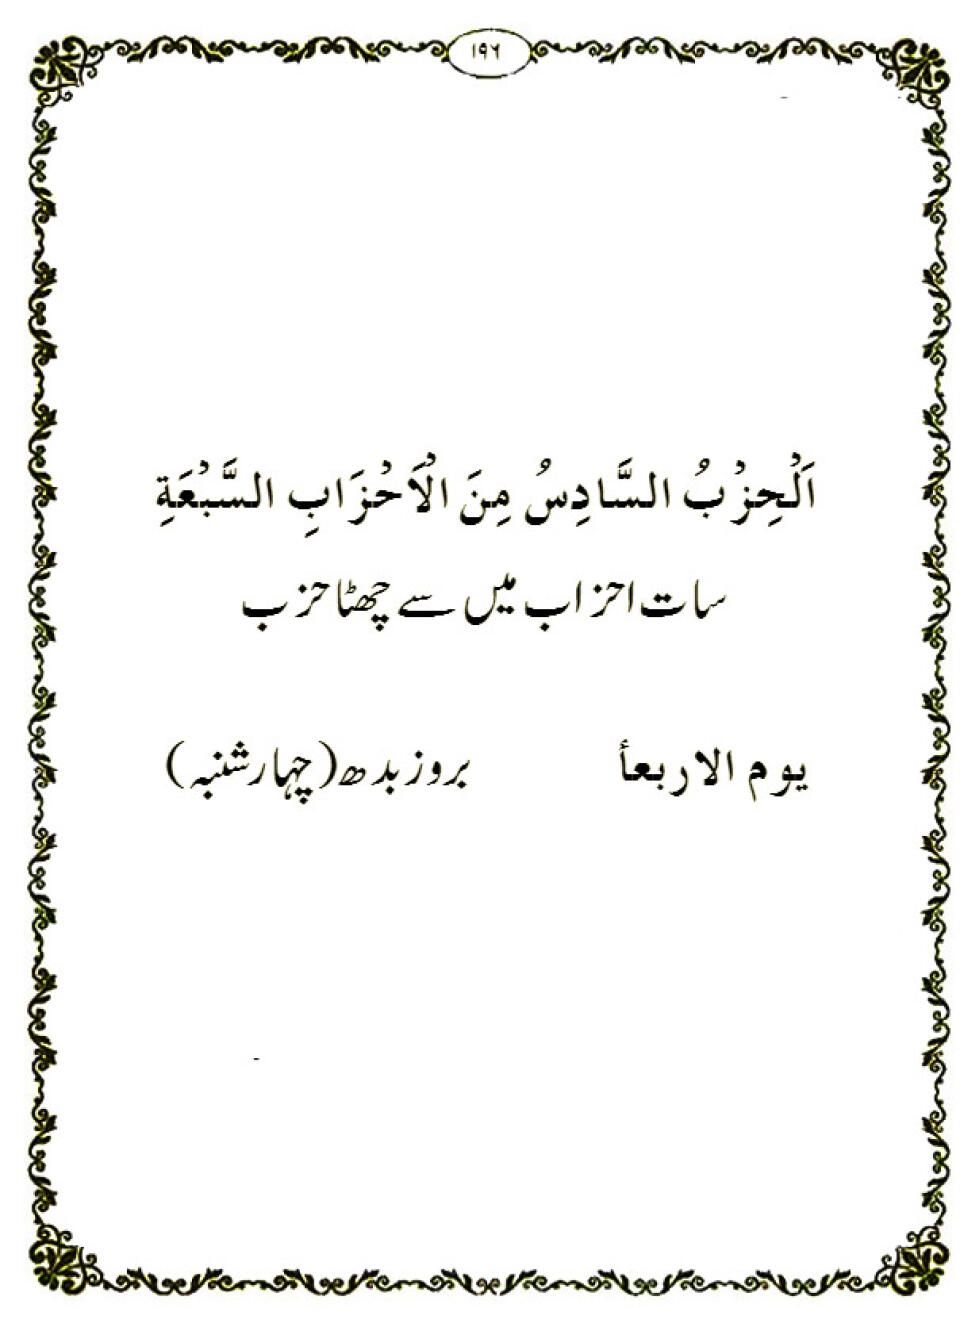 ١٩٦
اَلْحِزْبُ السَّادِسُ مِنَ الْاَحْزَابِ السَّبْعَةِ
سات احزاب میں سے چھٹا حزب
یوم الاربعأ بروز بدھ (چہار شنبہ)